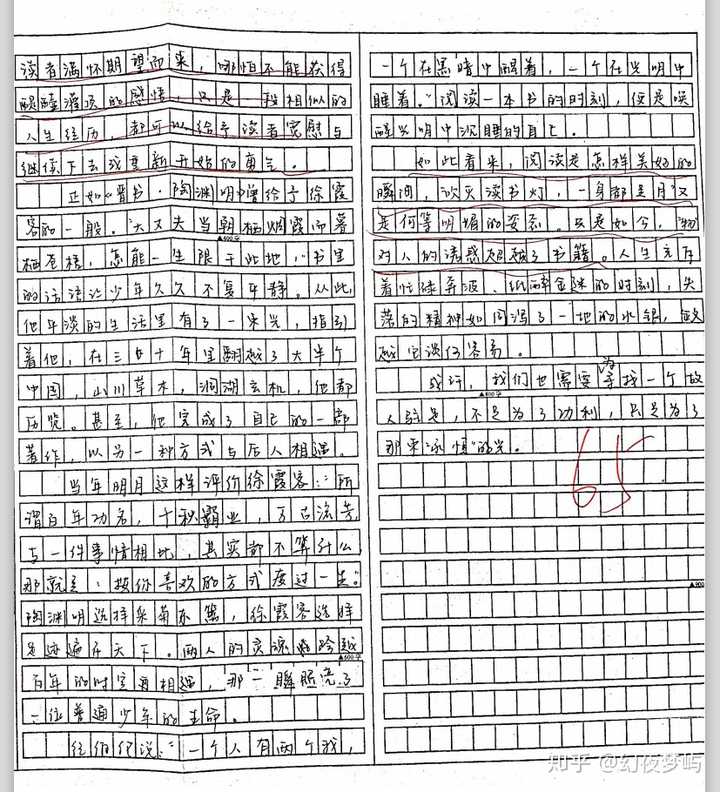 读者满怀期望而来，哪怕不能获得
醍醐灌顶的感悟，只是一段相似的
人生经历，都可以给予读者宽慰与
继续下去或重新开始的勇气。
正如《晋书·陶渊明》曾给予徐霞
客的一般。“大丈夫当朝栖烟霞而暮
栖苍梧，怎能一生限于此地，”书里
的话语让少年久久不复平静。从此
他平淡的生活里有了一束光，指引
着他，在三四十年里翻越了大半个
中国，山川草木，洞湖玄机，他都
历览。甚至，他完成了自己的一部
著作，以另一种方式与后人相遇。
当年明月这样评价徐霞客：“所
谓百年功名，千秋霸业，万古流芳，
与一件事情相比，其实都不算什么，
那就是：按你喜欢的方式度过一生。”
陶渊明选择采菊东篱，徐霞客选择
足迹遍布天下。两人的灵魂跨越
▲600字
百年的时空再相遇，那一瞬照亮了
一位普通少年的生命。
纪伯伦说：“一个人有两个我，
一个在黑暗中醒着，一个在光明中
睡着。”阅读一本书的时刻，便是唤
醒光明中沉睡的自己。
如此看来，阅读是怎样美好的
瞬间，“吹灭读书灯，一身都是月”又
是何等明媚的姿态。只是如今，“物
对人的流惑超越了书籍。人生充斥
着忙碌奔波、纸醉金迷的时刻，失
落的精神如同泻了一地的水银，超
越它谈何容易。
或许，我们也需要为寻找一个故
人驻足，不是为了功利，只是为了
那束“永恒”的光。
65
▲900
知乎 @幻夜梦屿